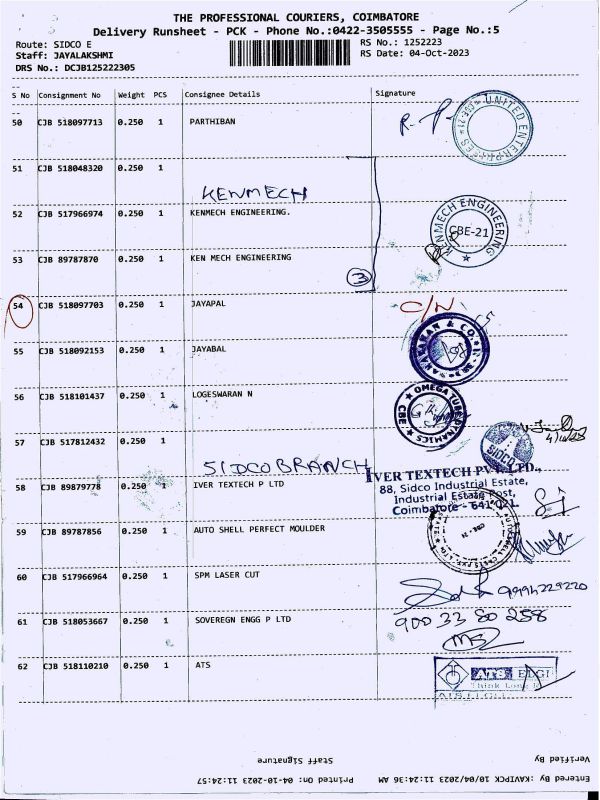 THE PROFESSIONAL COURIERS, COIMBATORE
Delivery Runsheet - PCK - Phone No.:0422-3505555 - Page No.:5
Route: SIDCO E
RS No.: 1252223
Staff: JAYALAKSHMI
RS Date: 04-Oct-2023
DRS No.: DCJB125222305
S No Consignment No Weight PCS Consignee Details Signature
50 CJB 518097713 0.250 1 PARTHIBAN
UNITED ENTERPRISES
51 CJB 518048320 0.250 1
KENMECH
52 CJB 517966974 0.250 1 KENMECH ENGINEERING.
KENMECH ENGINEERING
CBE-21
53 CJB 89787870 0.250 1 KEN MECH ENGINEERING
3
54 CJB 518097703 0.250 1 JAYAPAL
C/N
55 CJB 518092153 0.250 1 JAYABAL
56 CJB 518101437 0.250 1 LOGESWARAN N
CBE
57 CJB 517812432 0.250 1
SIDCO
4/10/23
SIDCO BRANCH
58 CJB 89879778 0.250 1 IVER TEXTECH P LTD
IVER TEXTECH PVT. LTD.,
88, Sidco Industrial Estate,
Industrial Estate Post,
Coimbatore - 641 021.
59 CJB 89787856 0.250 1 AUTO SHELL PERFECT MOULDER
60 CJB 517966964 0.250 1 SPM LASER CUT
61 CJB 518053667 0.250 1 SOVEREGN ENGG P LTD
900 33 80 258
62 CJB 518110210 0.250 1 ATS
ATS ELGI
Think Long
ATS ELGI
Verified By
Staff Signature
Entered By :KAVIPCK 10/04/2023 11:24:36 AM
Printed On: 04-10-2023 11:24:57